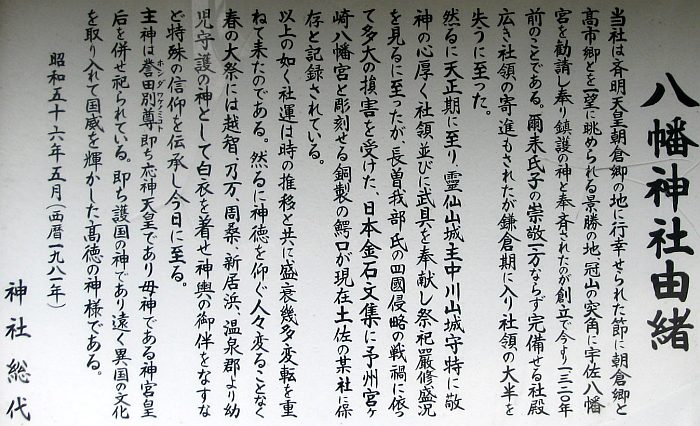 八幡神社由緒
当社は斉明天皇朝倉郷の地に行幸せられた節に朝倉郷と
高市郷とを一望に眺められる景勝の地冠山の突角に宇佐八幡
宮を勧請し奉り鎮護の神と奉斎されたのが創立で今より一三二〇年
前のことである。爾来氏子の崇敬一方ならず完備せる社殿
広き社領の寄進もされたが鎌倉期に入り社領の大半を
失うに至った。
然るに天正期に至り、霊仙山城主中川山城守特に敬
神の心厚く社領並びに武具を奉献し祭祀嚴修盛況
を見るに至ったが長曽我部氏の四國侵略の戦禍に依っ
て多大の損害を受けた、日本金石文集に予州宮ヶ
崎八幡宮と彫刻せる銅製の鰐口が現在土佐の某社に保
存と記録されている。
以上の如く社運は時の推移と共に盛衰幾多変転を重
ねて来たのである。然るに神徳を仰ぐ人々変ることなく
春の大祭には越智、乃万、周桑、新居浜、温泉郡より幼
児守護の神として白衣を着せ神輿の御伴をなすな
ど特殊の信仰を伝承し今日に至る。
主神は誉田別尊ホンダワケノミコト即ち応神天皇であり母神である神宮皇
后を併せ祀られている。即ち護国の神であり遠く異国の文化
を取り入れて国威を輝かした高徳の神様である。
昭和五十六年五月(西暦一九八一年)
神社総代